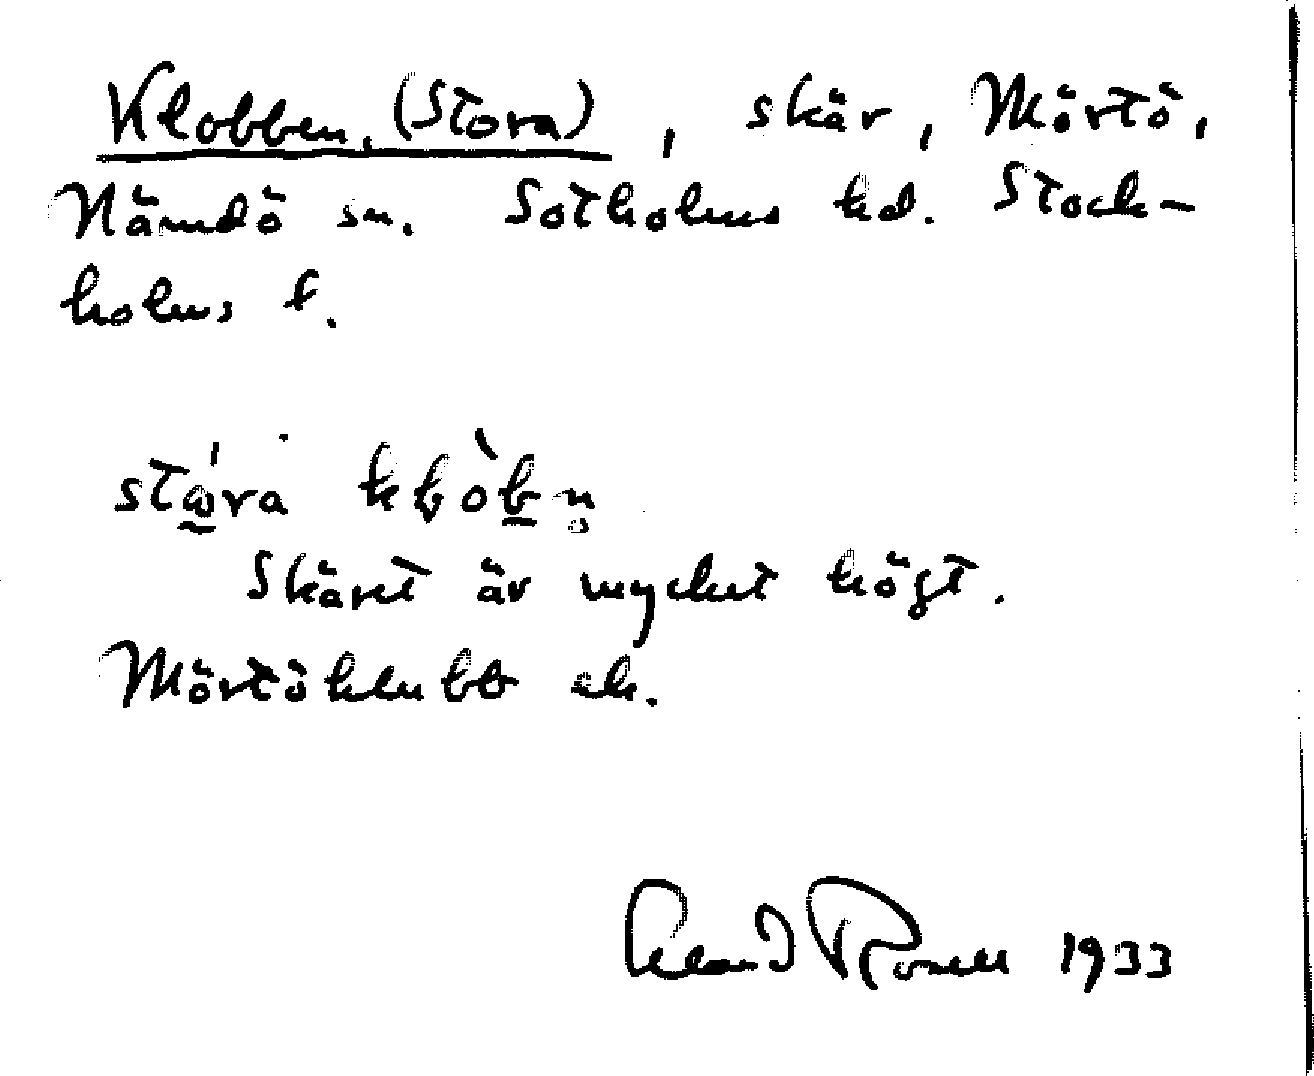 Klobben, (Stora), skär, Mörtö,
Nämdö sn. Sotholms hd. Stock-
holms l.
Skäret är mycket högt.
Mörtöklubb ek.
1933